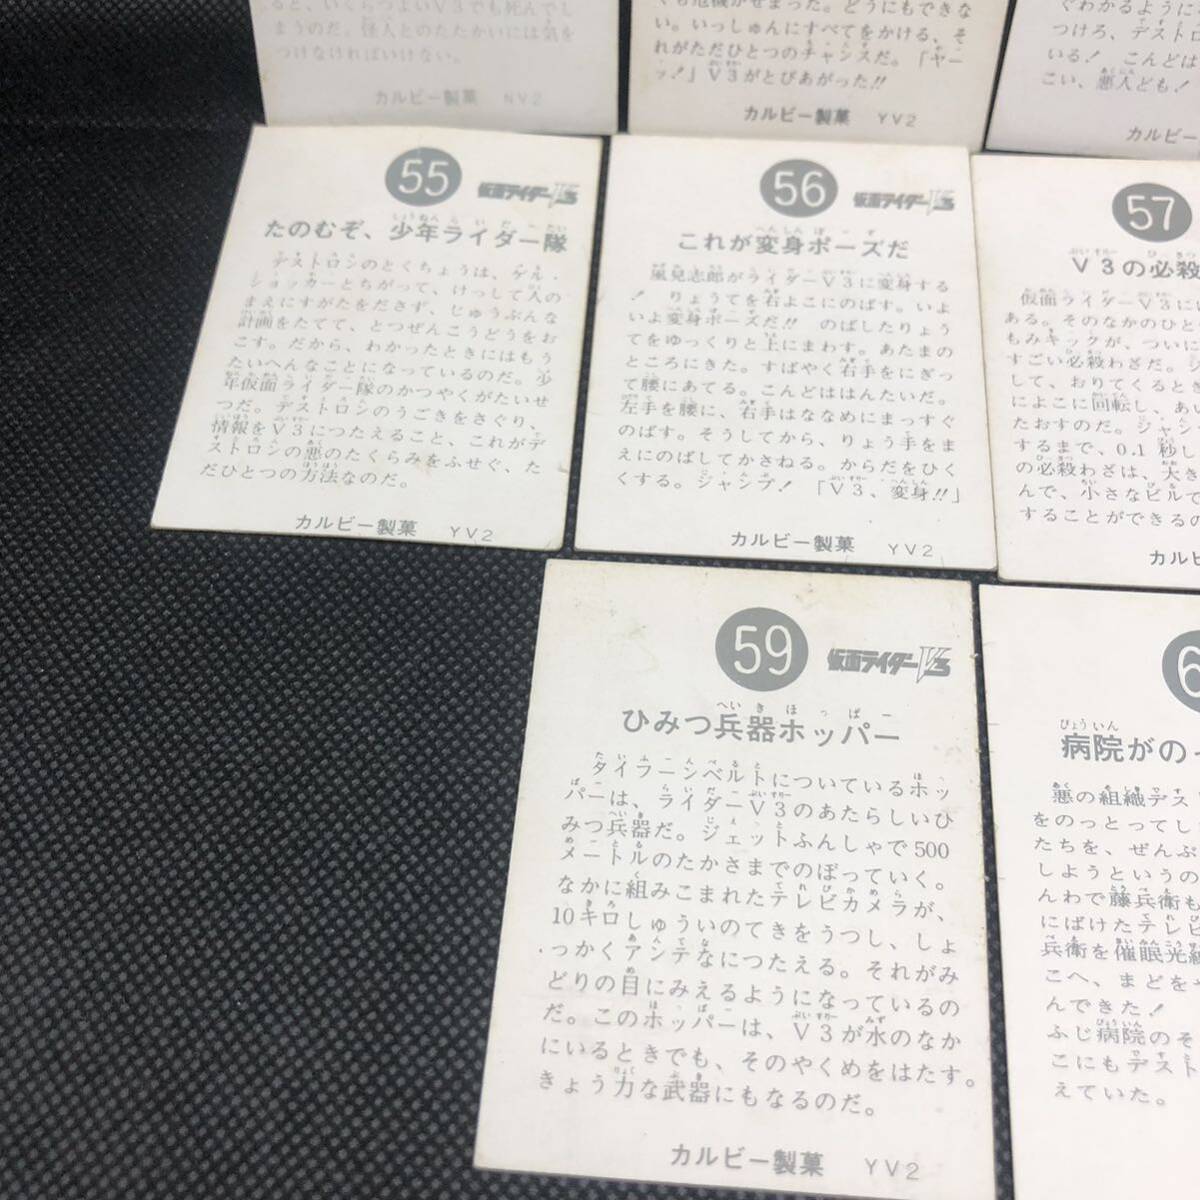 と、いくらつよいV3でも死んでし
まうのだ。怪人とのたたかいには気を
つけなければいけない。
カルビー製菓 NV2
も危機がせまった。どうにもできな
い。いっしゅんにすべてをかける、そ
れがただひとつのチャンスだ。「ヤー
ッ!」V3がとびあがった!!
カルビー製菓 YV2
ぐわかるように
つけろ、デストロ
いる! こんどは
こい、悪人ども!
カルビー
55
仮面ライダーV3
たのむぞ、少年ライダー隊
デストロンのとくちょうは、ゲル・
ショッカーとちがって、けっして人の
まえにすがたをださず、じゅうぶんな
計画をたてて、とつぜんこうどうをお
こす。だから、わかったときにはもう
たいへんなことになっているのだ。少
年仮面ライダー隊のかつやくがたいせ
つだ。デストロンのうごきをさぐり、
情報をV3につたえること、これがデ
ストロンの悪のたくらみをふせぐ、た
だひとつの方法なのだ。
カルビー製菓 YV2
56
仮面ライダーV3
これが変身ポーズだ
風見志郎がライダーV3に変身する
! りょうてを右よこにのばす。いよ
いよ変身ポーズだ!! のばしたりょう
てをゆっくりと上にまわす。あたまの
ところにきた。すばやく右手をにぎっ
て腰にあてる。こんどははんたいだ。
左手を腰に、右手はななめにまっすぐ
のばす。そうしてから、りょう手をま
えにのばしてかさねる。からだをひく
くする。ジャンプ! 「V3、変身!!」
カルビー製菓 YV2
57
V3の必殺
仮面ライダーV3に
ある。そのなかのひと
もみキックが、ついに
すごい必殺わざだ。ジ
して、おりてくると
によこに回転し、あ
たおすのだ。ジャン
するまで、0.1秒し
の必殺わざは、大き
んで、小さなビルで
することができるの
カルビ
59
仮面ライダーV3
ひみつ兵器ホッパー
タイフーンベルトについているホッ
パーは、ライダーV3のあたらしいひ
みつ兵器だ。ジェットふんしゃで500
メートルのたかさまでのぼっていく。
なかに組みこまれたテレビカメラが、
10キロしゅういのてきをうつし、しょ
っかくアンテナにつたえる。それがみ
どりの目にみえるようになっているの
だ。このホッパーは、V3が水のなか
にいるときでも、そのやくめをはたす。
きょう力な武器にもなるのだ。
カルビー製菓 YV2
6
病院がのっ
悪の組織デス
をのっとってし
たちを、ぜんぶ
しようというの
んわで藤兵衛も
にばけたテレビ
兵衛を催眠光線
こへ、まどを
んできた!
ふじ病院のそ
こにもデスト
えていた。